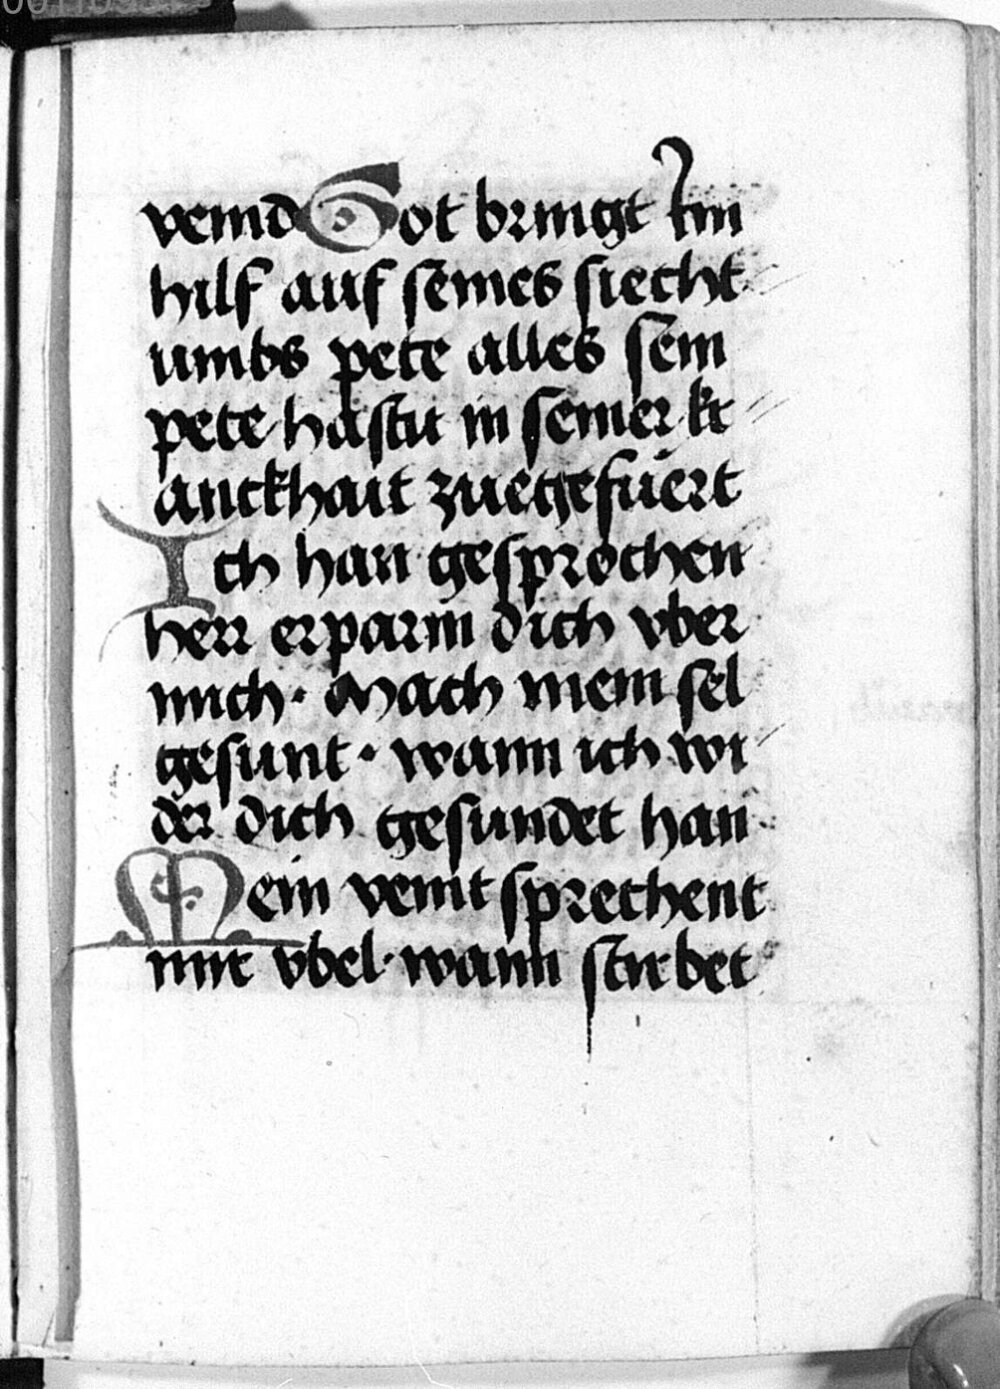 veind Got bringt Im
hilf auf seines siecht
umbs pete alles sein
pete hastu in seiner kr
anckhait zuegefuert
Ich han gesprochen
herr erparm dich vber
mich · Mach mein sel
gesunt · wann ich wi
der dich gesundet han
Mein veint sprechent
mir vbel · wann stirbet